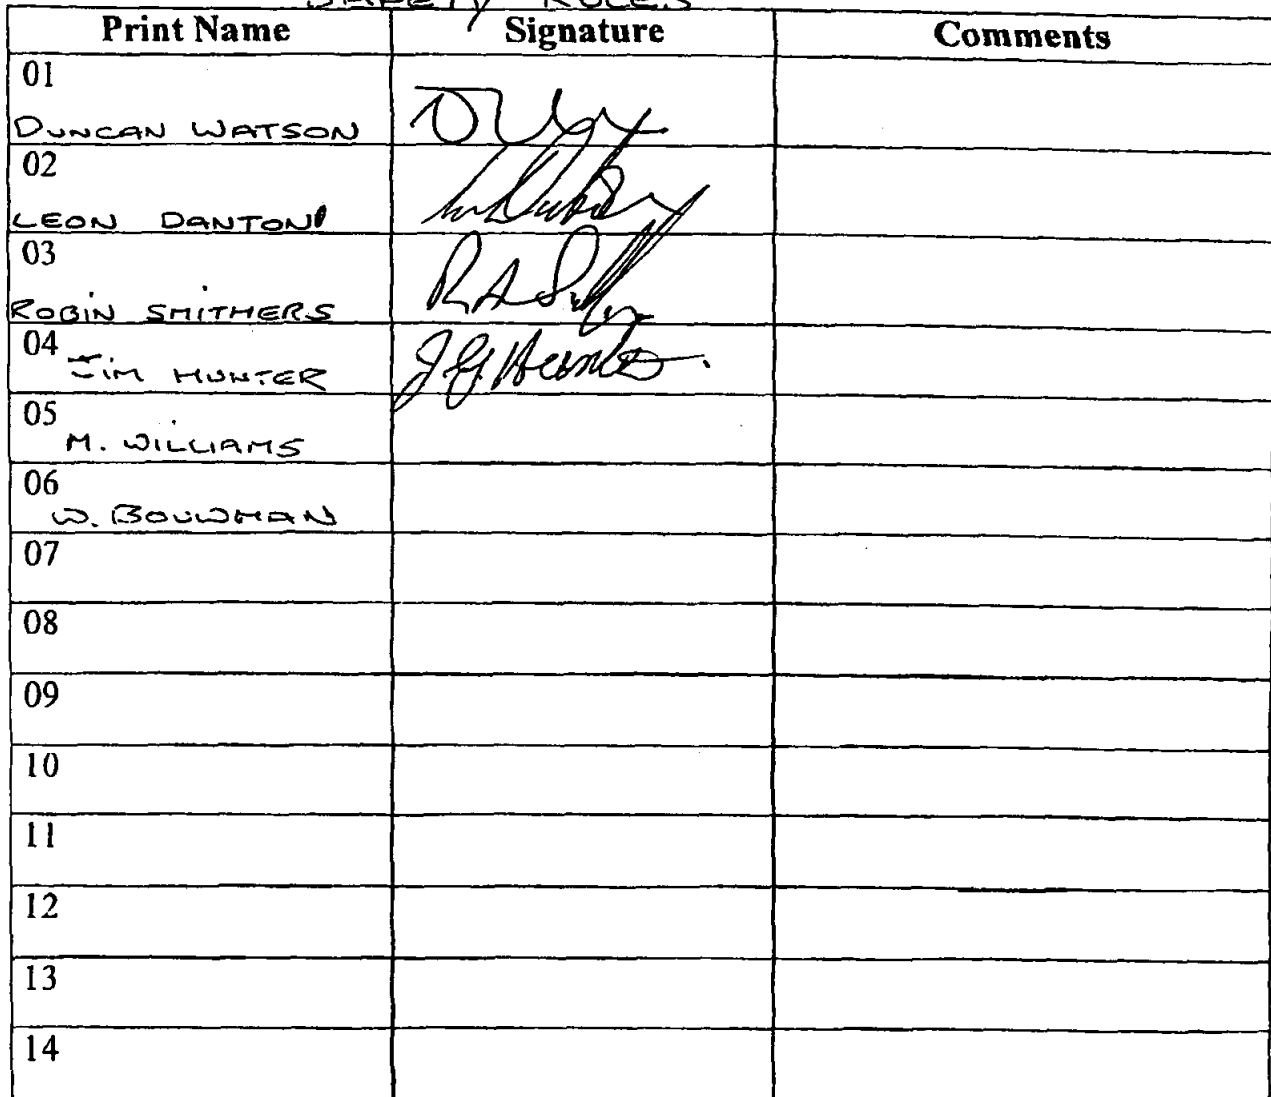 SAFETY RULES
Print Name Signature Comments
01
DUNCAN WATSON
02
LEON DANTON
03
ROBIN SMITHERS
04
JIM HUNTER J G Hunter
05
M. WILLIAMS
06
W. BOUWMAN
07
08
09
10
11
12
13
14